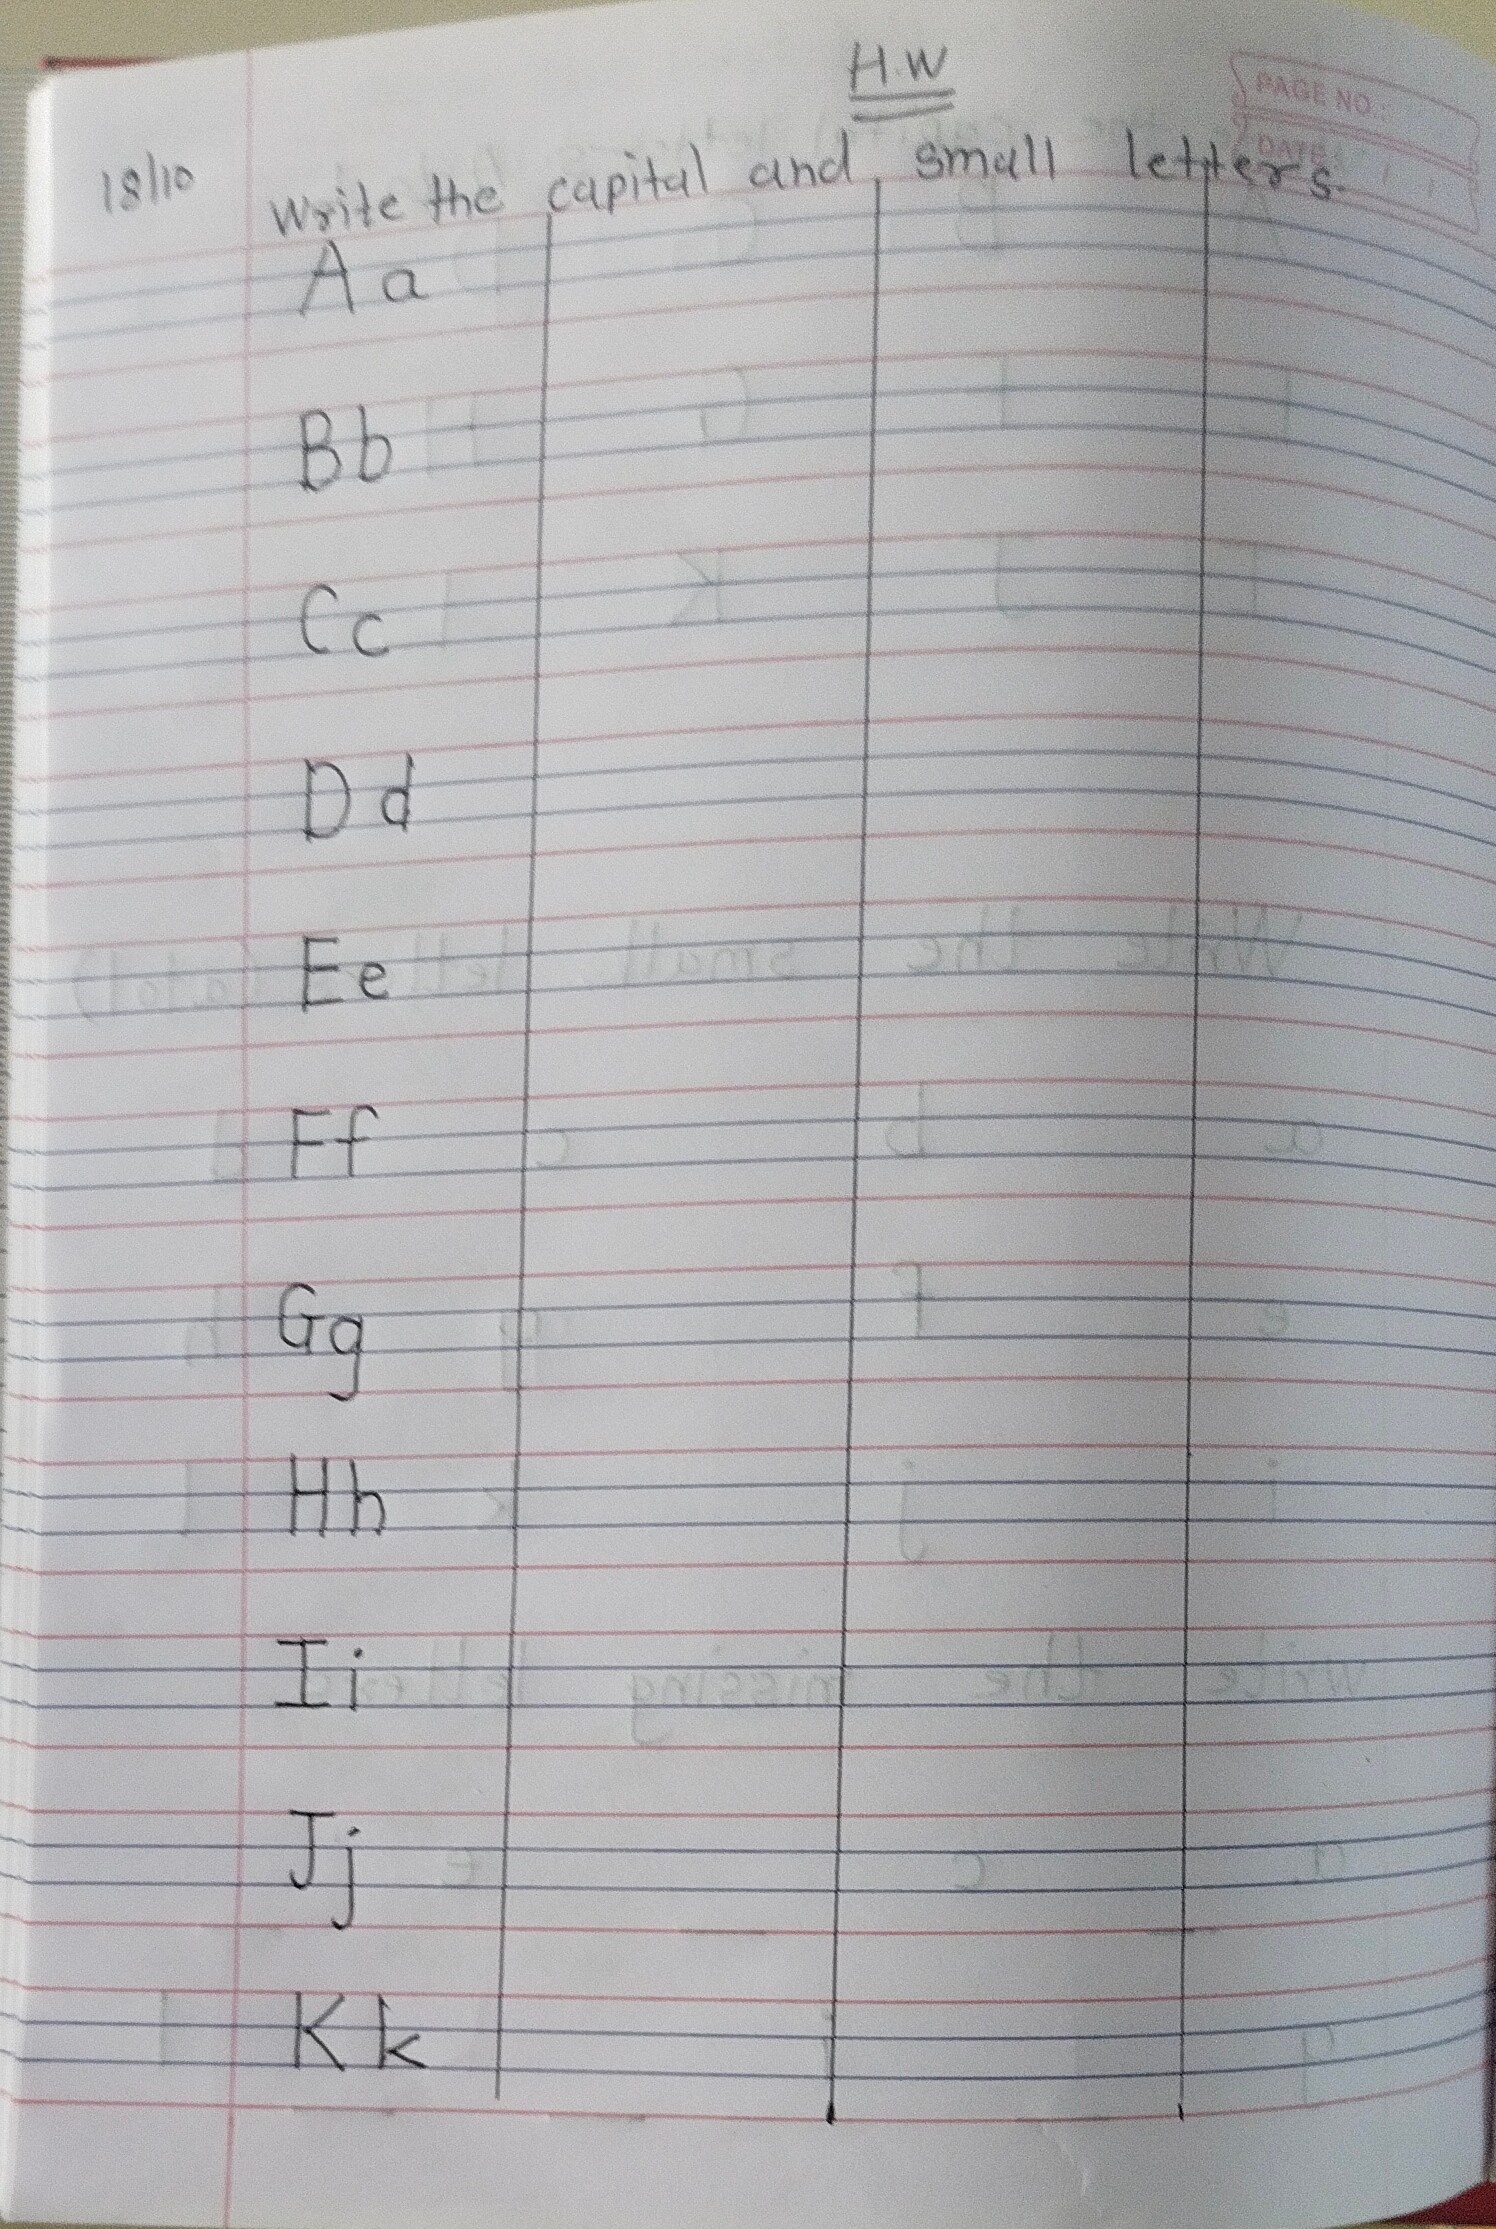 H.W
PAGE NO.:
DATE:
18/10
Write the capital and small letters.
A a
B b
C c
D d
E e
F f
G g
H h
I i
J j
K k